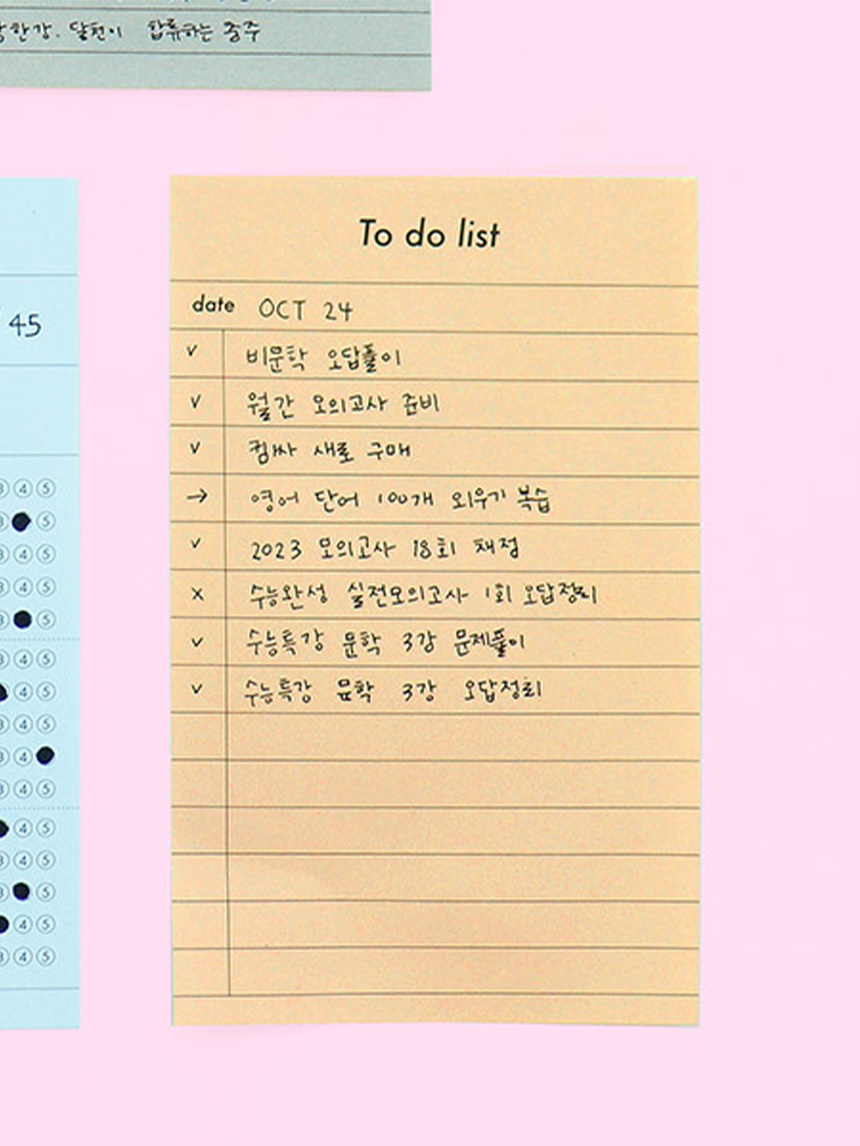 남한강. 달천이 합류하는 충주
To do list
date OCT 24
v 비문학 오답풀이
v 월간 모의고사 준비
v 컴싸 새로 구매
→ 영어 단어 100개 외우기 복습
v 2023 모의고사 18회 채점
x 수능완성 실전모의고사 1회 오답정리
v 수능특강 문학 3강 문제풀이
v 수능특강 문학 3강 오답정리
45
④ ⑤
⑤
④ ⑤
④ ⑤
⑤
④ ⑤
④ ⑤
④ ⑤
④
④ ⑤
④ ⑤
④ ⑤
⑤
④ ⑤
④ ⑤